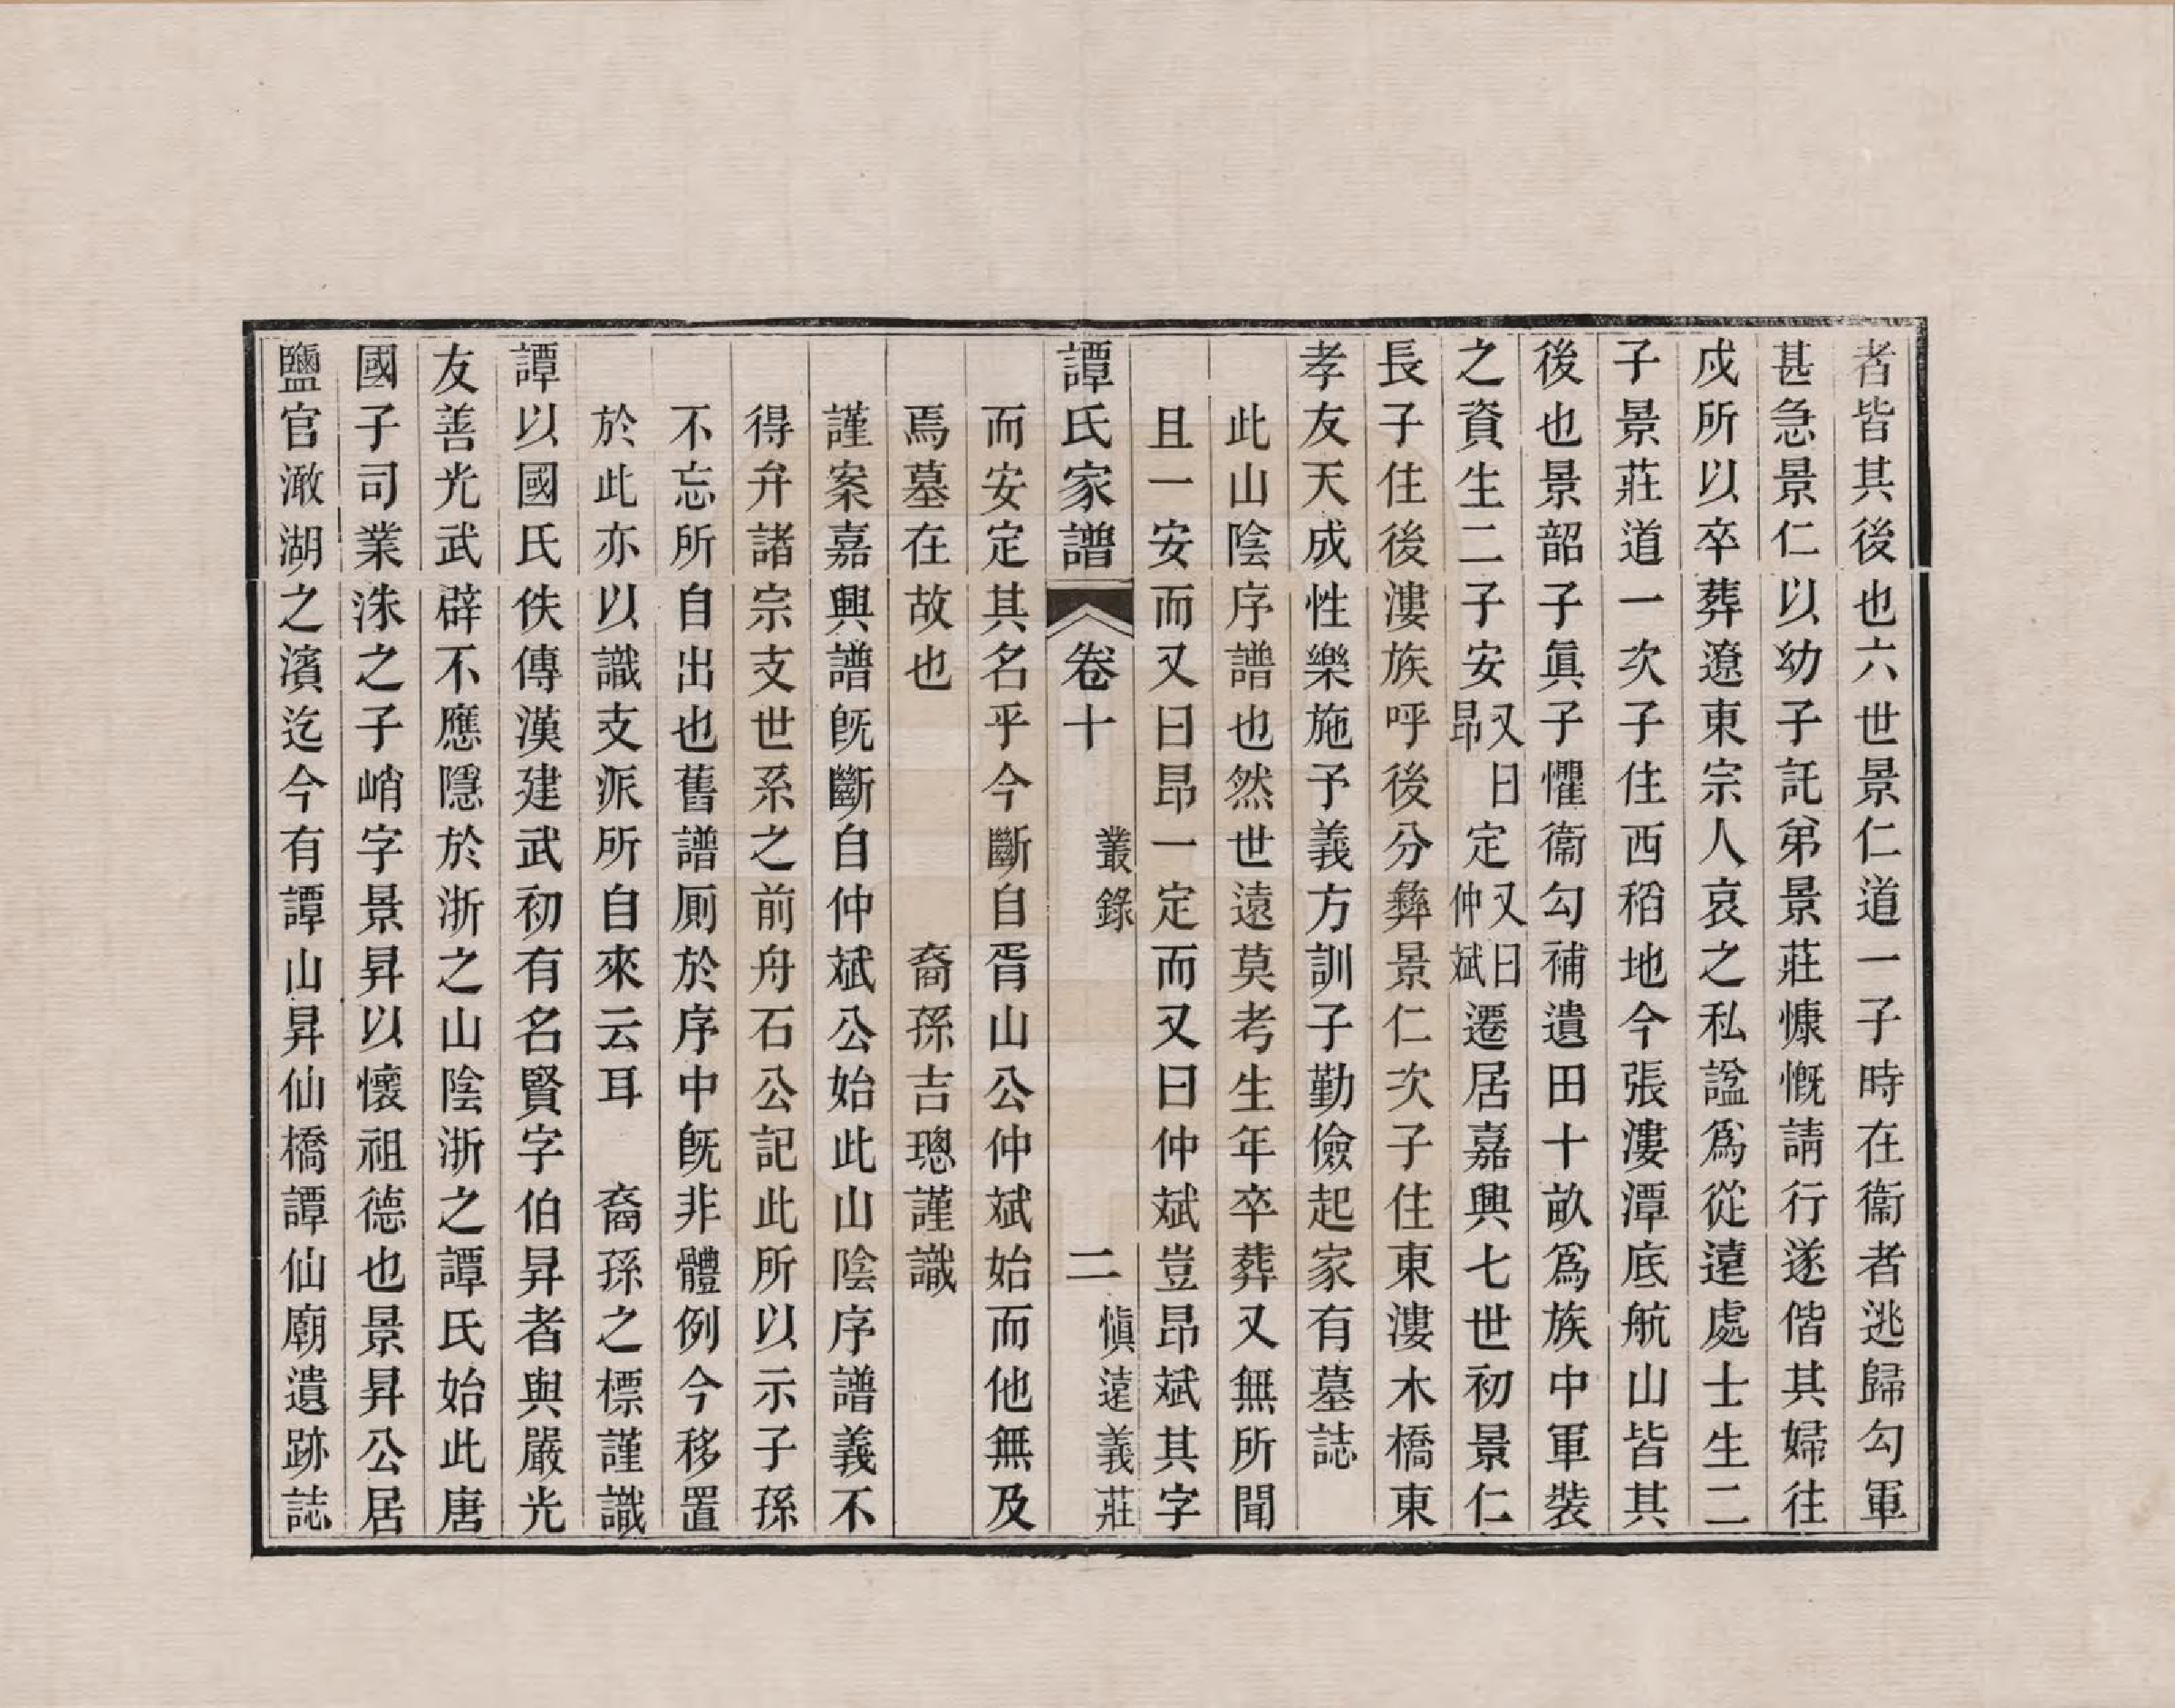 者皆其後也六世景仁道一子時在衞者逃歸勾軍
甚急景仁以幼子託弟景莊慷慨請行遂偕其婦往
戍所以卒葬遼東宗人哀之私諡爲從遠處士生二
子景莊道一次子住西稻地今張漊潭底航山皆其
後也景韶子眞子懼衞勾補遺田十畝爲族中軍裝
之資生二子安又曰昻定又曰仲斌遷居嘉興七世初景仁
長子住後漊族呼後分彝景仁次子住東漊木橋東
孝友天成性樂施予義方訓子勤儉起家有墓誌
此山陰序譜也然世遠莫考生年卒葬又無所聞
且一安而又曰昻一定而又曰仲斌豈昻斌其字
譚氏家譜 卷十 叢錄 二 愼遠義莊
而安定其名乎今斷自胥山公仲斌始而他無及
焉墓在故也 裔孫吉璁謹識
謹案嘉興譜旣斷自仲斌公始此山陰序譜義不
得弁諸宗支世系之前舟石公記此所以示子孫
不忘所自出也舊譜厠於序中旣非體例今移置
於此亦以識支派所自來云耳 裔孫之標謹識
譚以國氏佚傳漢建武初有名賢字伯昇者與嚴光
友善光武辟不應隱於浙之山陰浙之譚氏始此唐
國子司業洙之子峭字景昇以懷祖德也景昇公居
鹽官澉湖之濱迄今有譚山昇仙橋譚仙廟遺跡誌